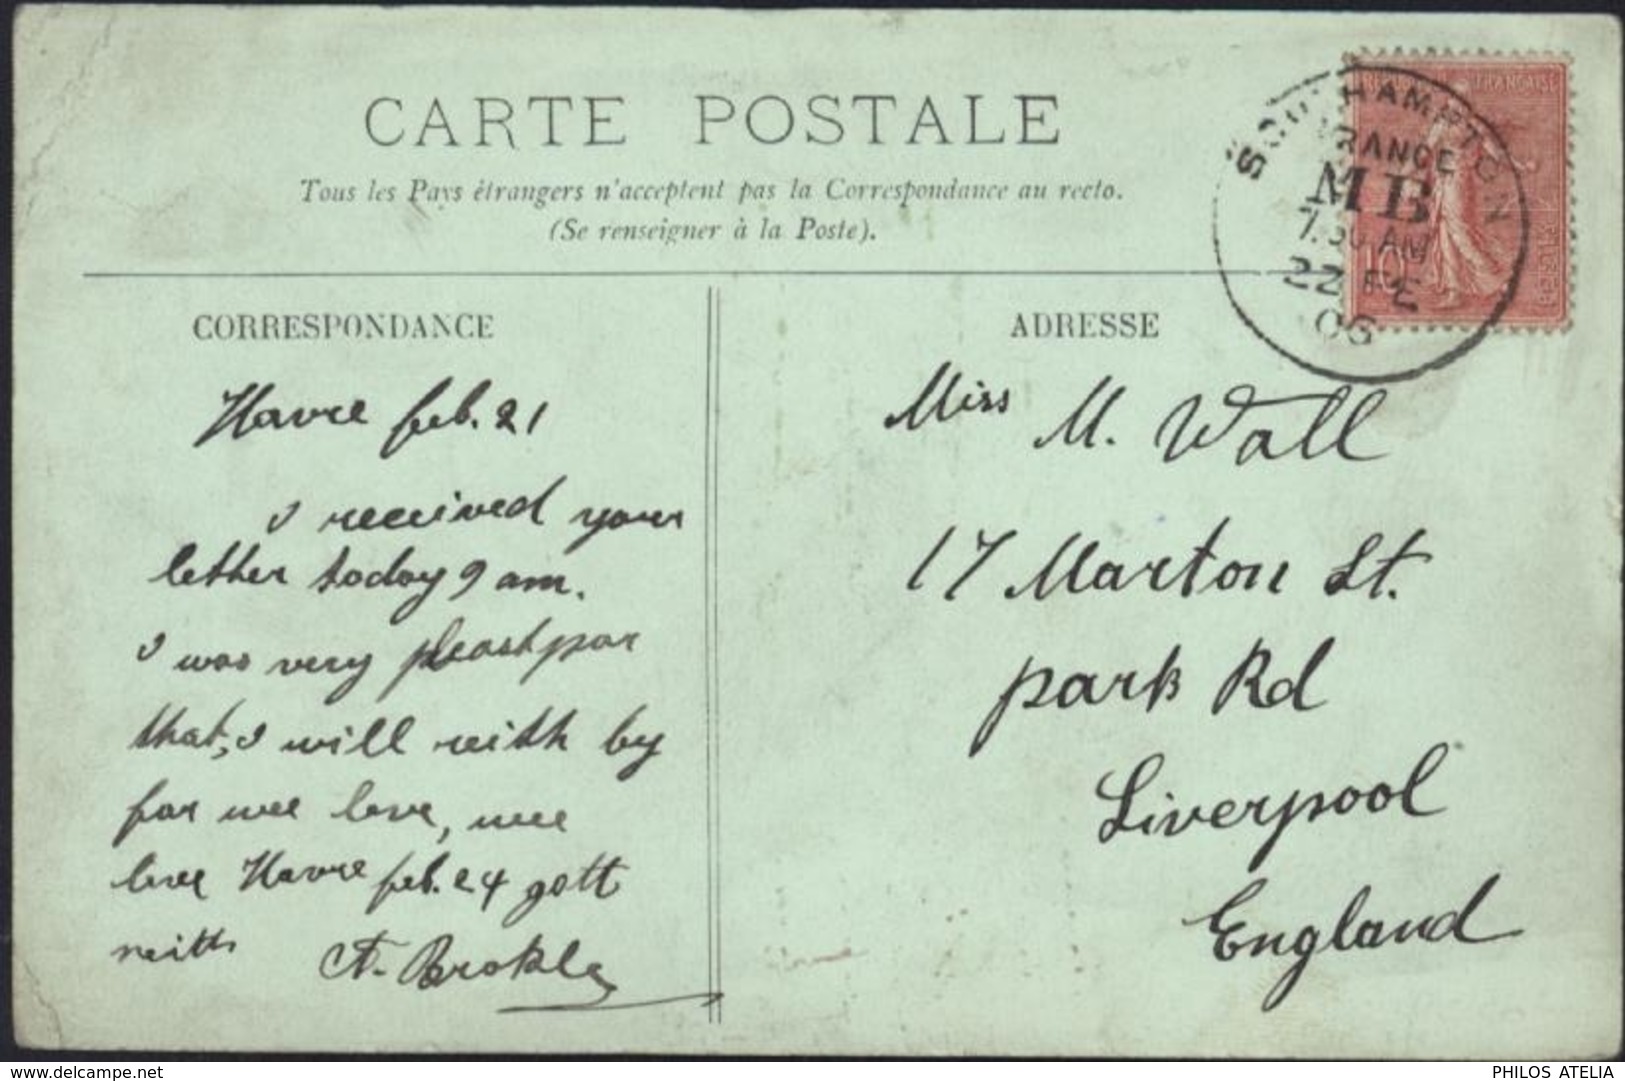 CARTE POSTALE
Tous les Pays étrangers n'acceptent pas la Correspondance au recto.
(Se renseigner à la Poste).
SOUTHAMPTON
FRANCE
MB
7.30 AM
22 FE
06
REPUBLIQUE FRANÇAISE
10
CORRESPONDANCE
Havre feb. 21
I received your
letter today 9 am.
I was very pleast par
that, I will reith by
for wee love, wee
love Havre feb. 24 gott
reith
A. Brokly
ADRESSE
Miss M. Wall
17 Marton St.
park Rd
Liverpool
England
www.delcampe.net
PHILOS ATELIA